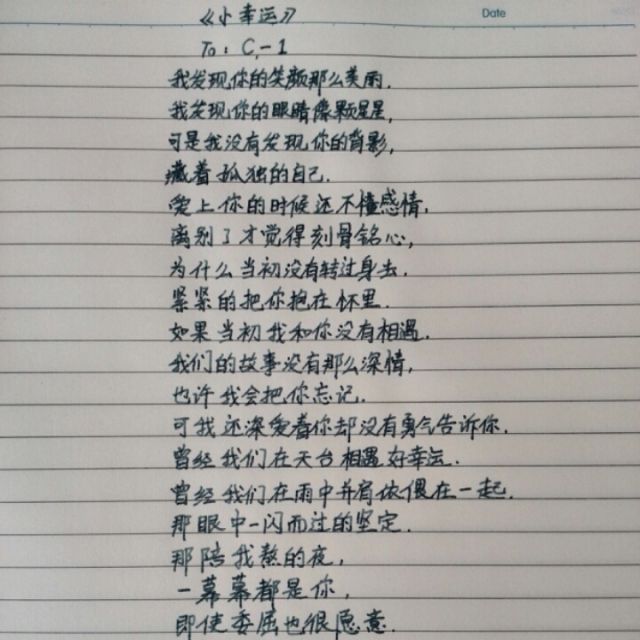 Date
《小幸运》
To：C,-1
我发现你的笑颜那么美丽.
我发现你的眼睛像颗星星,
可是我没有发现你的背影,
藏着孤独的自己.
爱上你的时候还不懂感情,
离别了才觉得刻骨铭心,
为什么当初没有转过身去.
紧紧的把你抱在怀里.
如果当初我和你没有相遇.
我们的故事没有那么深情,
也许我会把你忘记.
可我还深爱着你却没有勇气告诉你.
曾经我们在天台相遇好幸运.
曾经我们在雨中并肩依偎在一起.
那眼中一闪而过的坚定.
那陪我熬的夜,
一幕幕都是你,
即使委屈也很愿意.